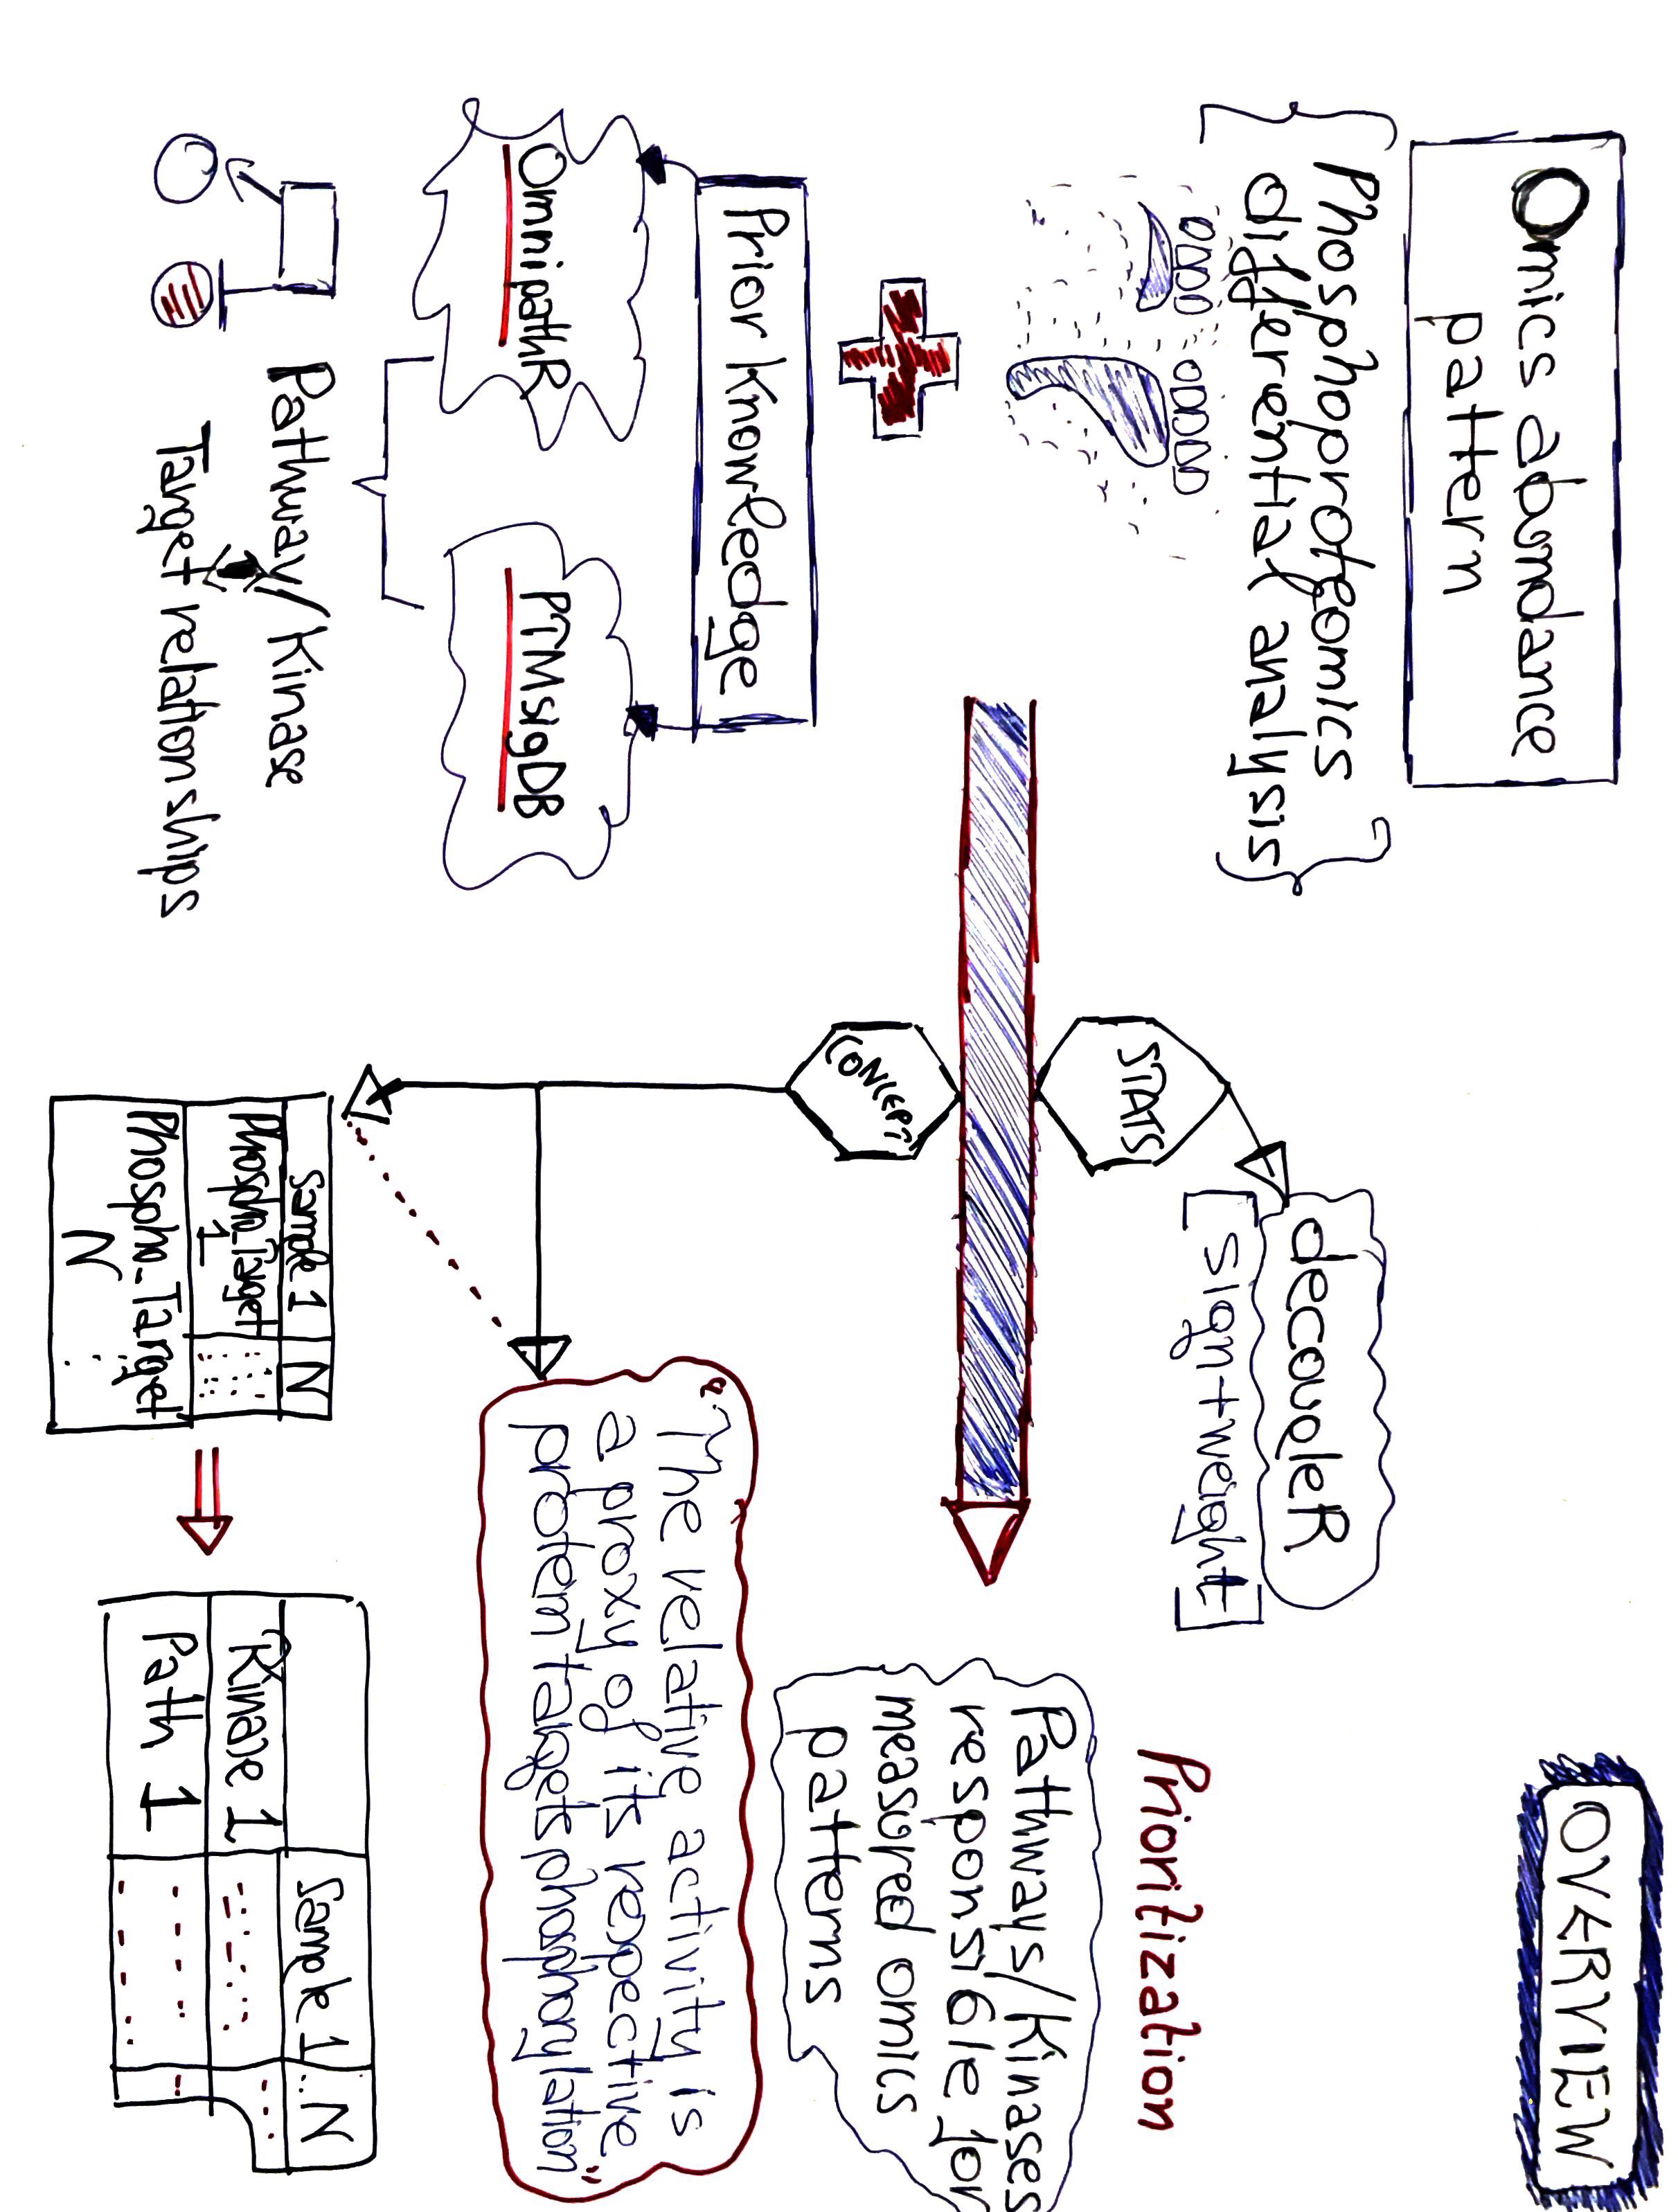 OVERVIEW
Omics abundance
pattern
Phosphoproteomics
differential analysis
Prior Knowledge
OmnipathR
PTMsigDB
Pathway/Kinase
Target relationships
STATS
decoupleR
[sign+weight]
CONCEPT
Prioritization
Pathways/Kinases
responsible for
measured omics
patterns
"The relative activity is
a proxy of its respective
protein targets phosphorylation"
Sample 1 N
Phospho_Target
1
Phospho_Target
N
Sample 1 .. N
Kinase 1
Path 1